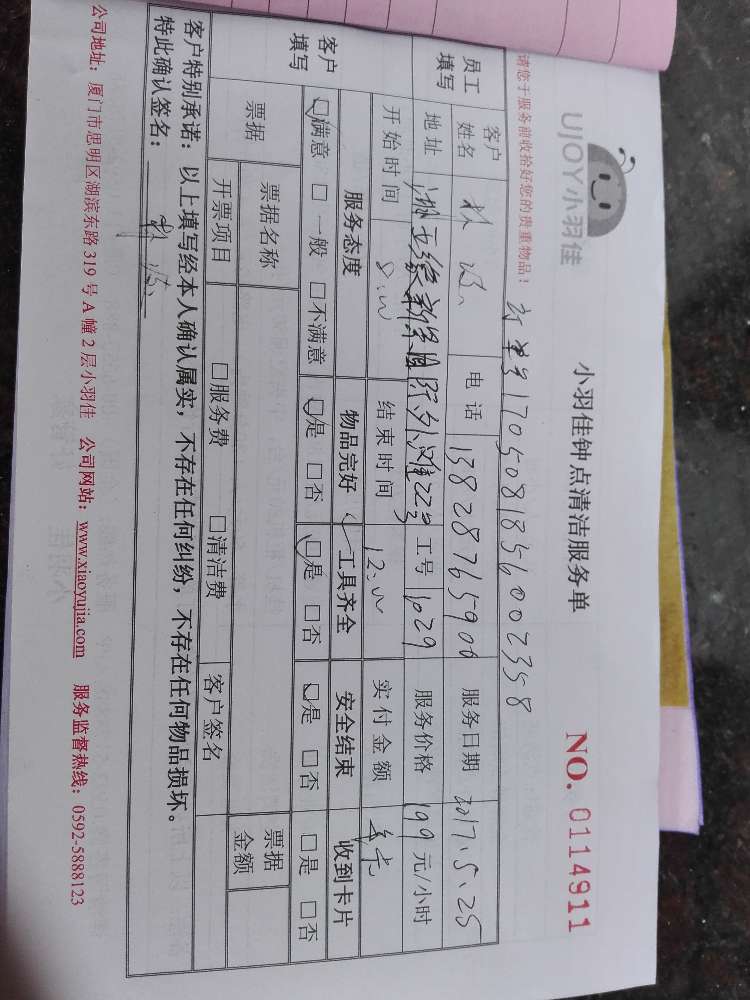 UJOY小羽佳
小羽佳钟点清洁服务单
NO. 0114911
请您于服务前收拾好您的贵重物品!
订单号1705081856002358
员工填写
客户姓名 电话 13828765906 服务日期 2017.5.25
地址 工号 1029 服务价格 199 元/小时
开始时间 8:00 结束时间 12:00 实付金额
客户填写
服务态度 物品完好 工具齐全 安全结束 收到卡片
☑满意 □一般 □不满意 ☑是 □否 ☑是 □否 ☑是 □否 □是 □否
票据 票据名称 票据金额
开票项目 □服务费 □清洁费 客户签名
客户特别承诺:以上填写经本人确认属实,不存在任何纠纷,不存在任何物品损坏。
特此确认签名:
公司地址:厦门市思明区湖滨东路 319 号 A 幢 2 层小羽佳 公司网站:www.xiaoyujia.com 服务监督热线:0592-5888123